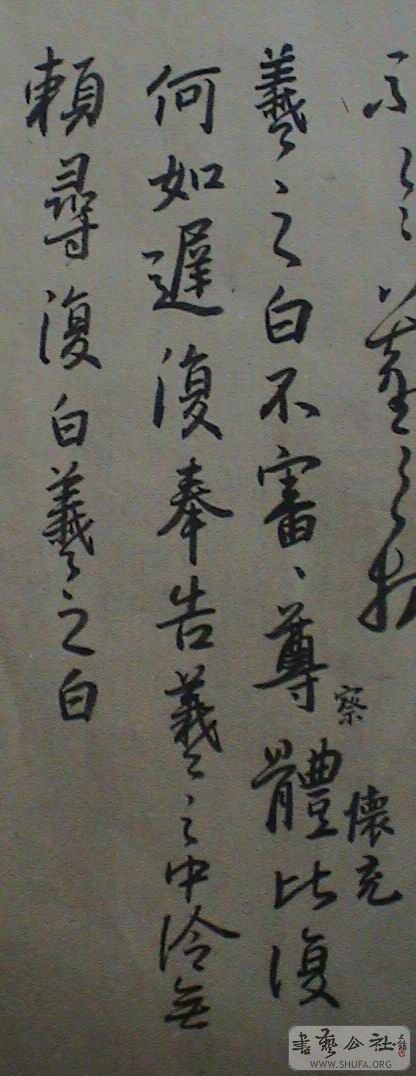 羲之
懷充
察
羲之白不審尊體比復
何如遲復奉告羲之中冷無
賴尋復白羲之白
書藝公社
WWW.SHUFA.ORG